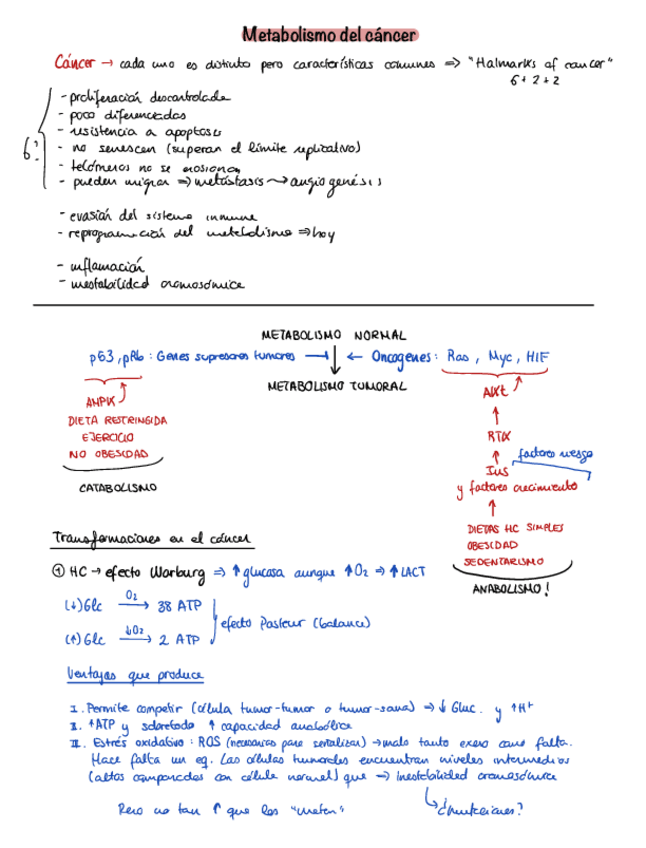 Metabolismo del cáncer
Cáncer → cada uno es distinto pero características comunes ⇒ "Halmarks of cancer"
6+2+2
6:
- proliferación descontrolada
- poco diferenciadas
- resistencia a apoptosis
- no senescen (superan el límite replicativo)
- telómeros no se erosionan
- pueden migrar ⇒ metástasis → angiogénesis
- evasión del sistema inmune
- reprogramación del metabolismo ⇒ hoy
- inflamación
- inestabilidad cromosómica
METABOLISMO NORMAL
p53, pRb : Genes supresores tumores ⊣ ↓ ← Oncogenes : Ras, Myc, HIF
METABOLISMO TUMORAL
AMPK
DIETA RESTRINGIDA
EJERCICIO
NO OBESIDAD
CATABOLISMO
Akt
↑
RTK
↑ factores riesgo
Ins
y factores crecimiento
↑
DIETAS HC SIMPLES
OBESIDAD
SEDENTARISMO
ANABOLISMO!
Transformaciones en el cáncer
① HC → efecto Warburg ⇒ ↑ glucosa aunque ↑ O2 ⇒ ↑ LACT
(↓) Glc O2 → 38 ATP
(↑) Glc ↓O2 → 2 ATP
efecto Pasteur (balance)
Ventajas que produce
I. Permite competir (célula tumor-tumor o tumor-sana) ⇒ ↓ Gluc. y ↑ H+
II. ↑ATP y sobretodo ↑ capacidad anabólica
III. Estrés oxidativo : ROS (necesarios para señalizar) → malo tanto exceso como falta.
Hace falta un eq. Las células tumorales encuentran niveles intermedios
(altos comparados con célula normal) que ⇒ inestabilidad cromosómica
Pero no tan ↑ que las "maten"
¿mutaciones?